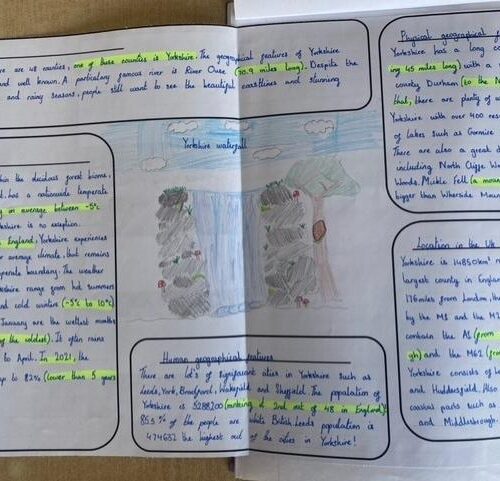 re are 48 counties, one of those counties is Yorkshire. The geographical features of Yorkshire
and well known. A particulary famous river is River Ouse (70.9 miles long). Despite the
and rainy seasons, people still want to see the beautiful coastlines and stunning
Physical geographical f
Yorkshire has a long co
ing 45 miles long) with a
county Durham (to the N
that, there are plenty of
Yorkshire with over 400 res
of lakes such as Gormire
There are also a great d
including North Cliffe Wo
Woods. Mickle Fell (a moun
bigger than Wherside Moun
Yorkshire waterfall
hin the decidous forest biome,
t has a nationwide temperate
g in average between -5°c
rkshire is no exception.
England, Yorkshire experiences
r average climate, but remains
perate boundary. The weather
kshire range from hot summers
and cold winter (-5°c to 10°c)
January are the wettest months
g the coldest). It often rains
to April. In 2021, the
up to 82% (lower than 5 years
Location in the UK
Yorkshire is 14850km²
largest county in England
176miles from London
by the M1 and the M2
contain the A1 (from
gh) and the M62 (from
Yorkshire consists of L
and Huddersfield. Also
coastal parts such as
and Middlesbrough.
Human geographical features
There are lot's of significant cities in Yorkshire such as
Leeds, York, Bradford, Wakefield and Sheffield. The population of
Yorkshire is 5288200 (ranking at 2nd out of 48 in England).
85.5% of the people are White British. Leeds population is
474632 the highest out of the cities in Yorkshire!